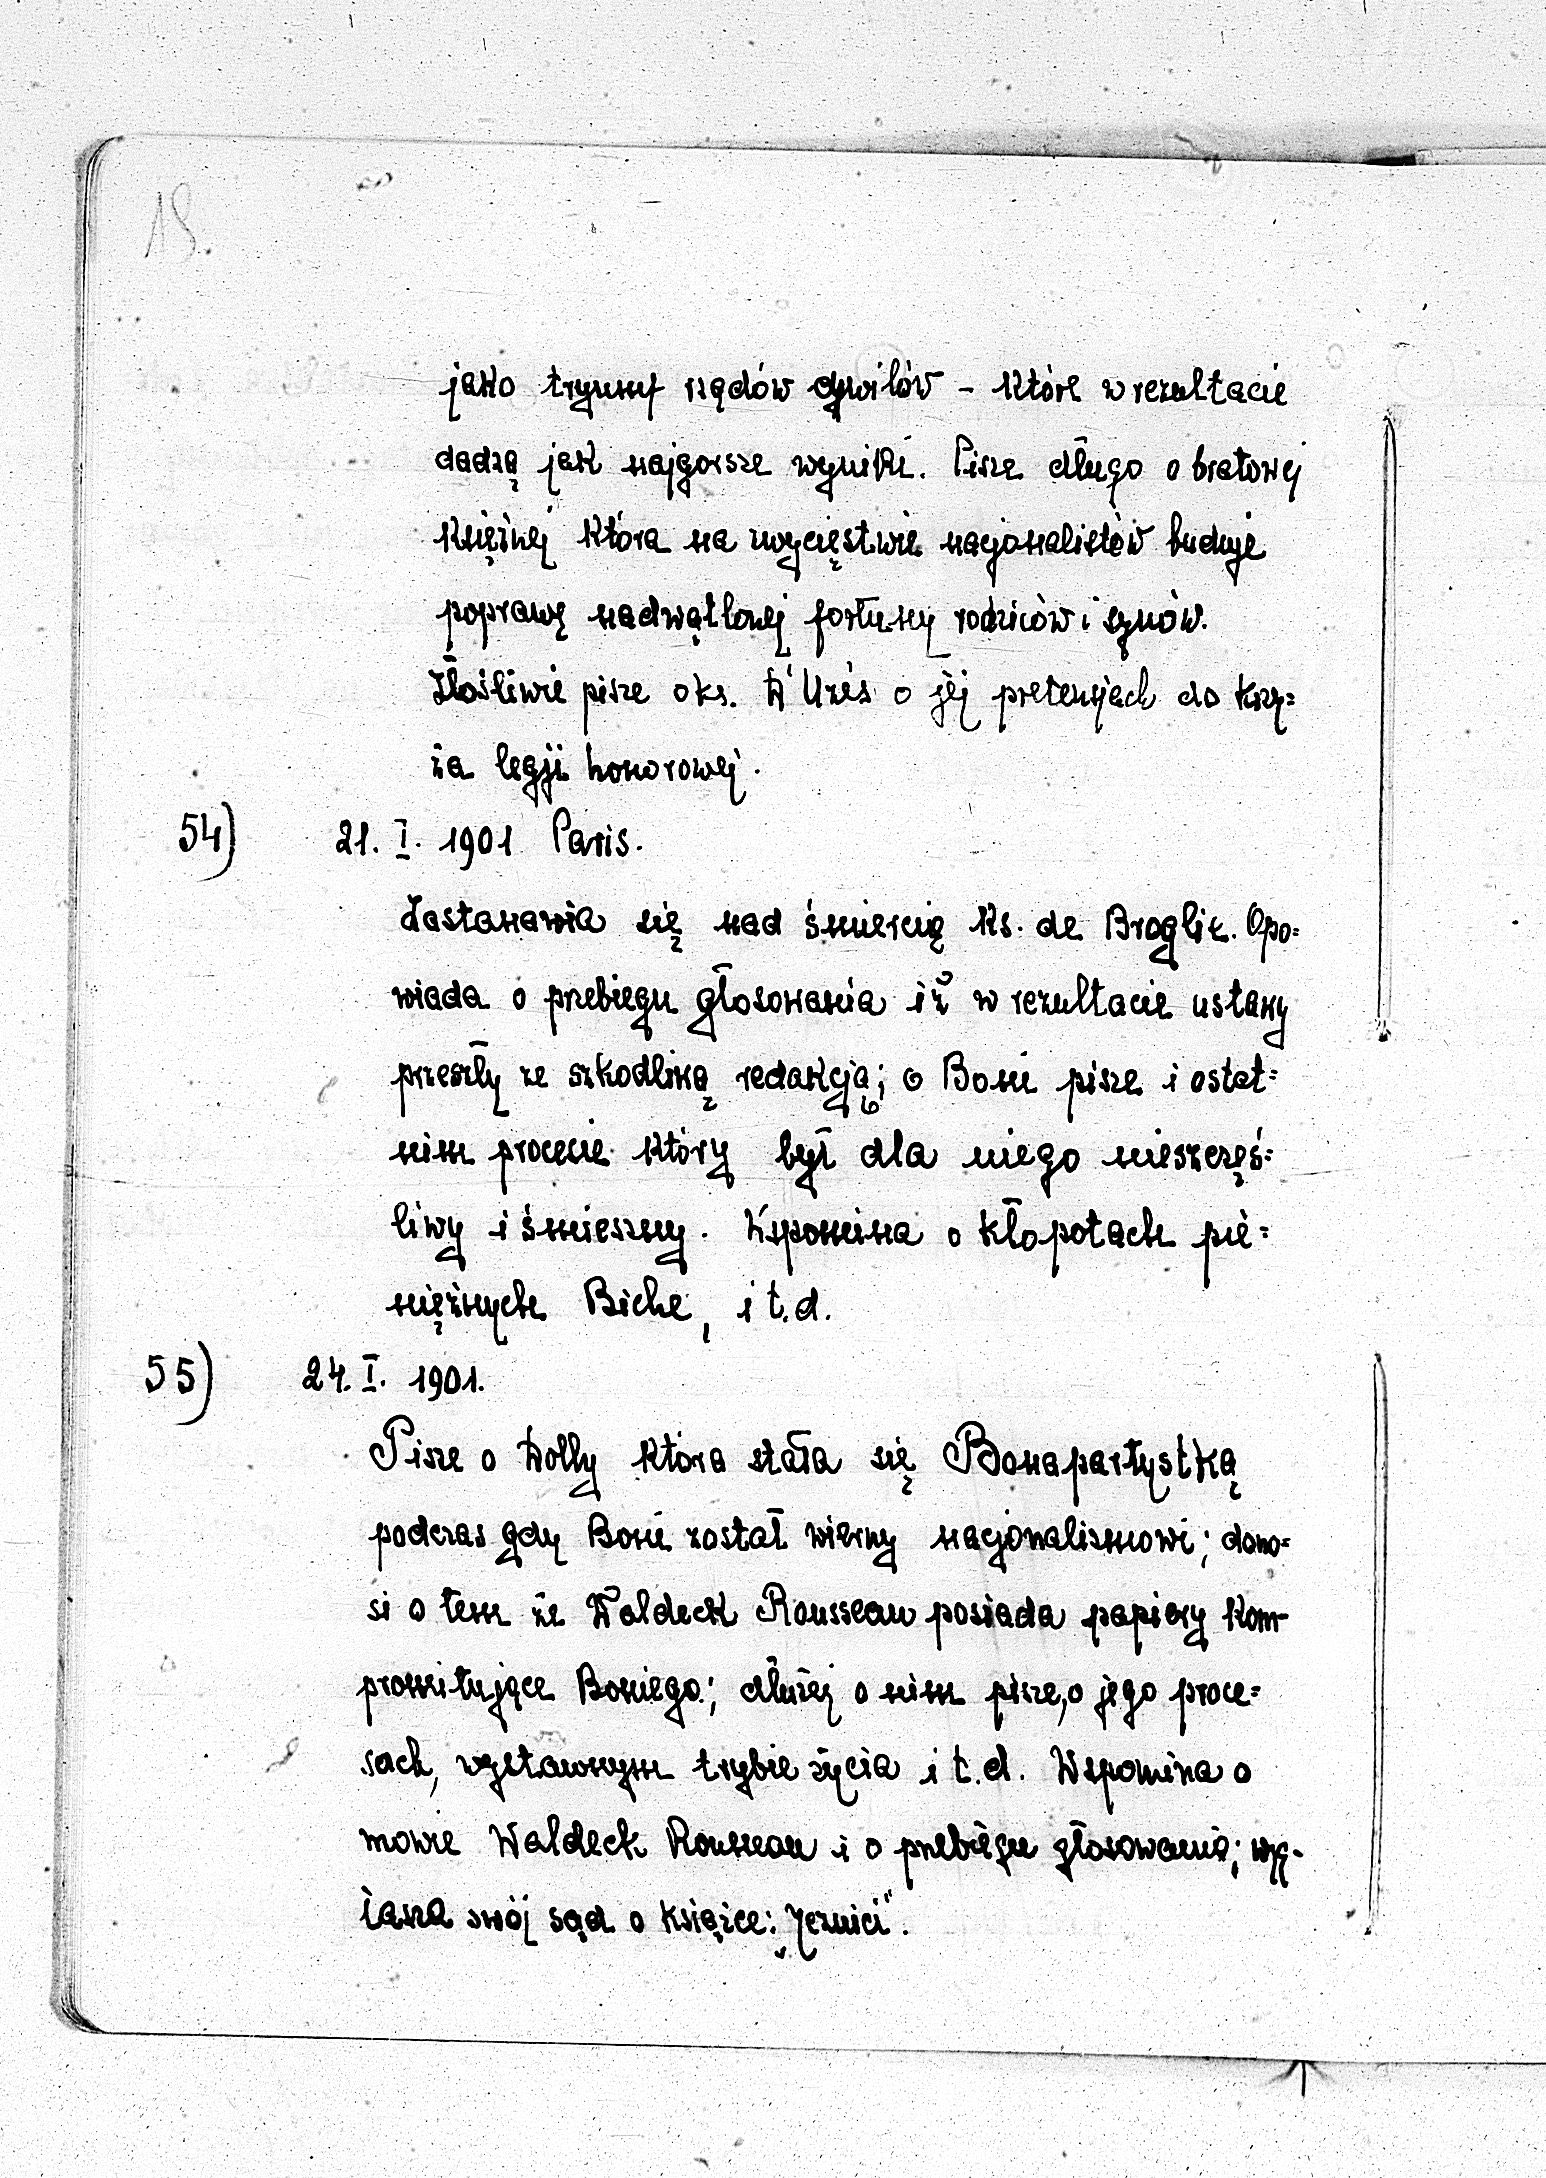 18.
jako tryumf rządów cywilów – które w rezultacie
dadzą jak najgorsze wyniki. Pisze długo o bratowej
księżnej która na zwycięstwie nacjonalistów buduje
poprawę nadwątlonej fortuny rodziców i synów.
Złośliwie pisze o ks. D'Uzès o jej pretensjach do krzy=
ża legji honorowej.
54) 21. I. 1901 Paris.
Zastanawia się nad śmiercią ks. de Broglie. Opo=
wiada o przebiegu głosowania iż w rezultacie ustawy
przeszły ze szkodliwą redakcją; o Boni pisze i ostat=
nim procesie który był dla niego nieszczęś=
liwy i śmieszny. Wspomina o kłopotach pie=
niężnych Biche, i t.d.
55) 24. I. 1901.
Pisze o Dolly która stała się Bonapartystką
podczas gdy Boni został wierny nacjonalizmowi; dono=
si o tem że Waldeck Rousseau posiada papiery kom-
promitujące Boniego; dłużej o nim pisze, o jego proce=
sach, wystawnym trybie życia i t.d. Wspomina o
mowie Waldeck Rousseau i o przebiegu głosowania; wyj-
iasna swój sąd o książce: